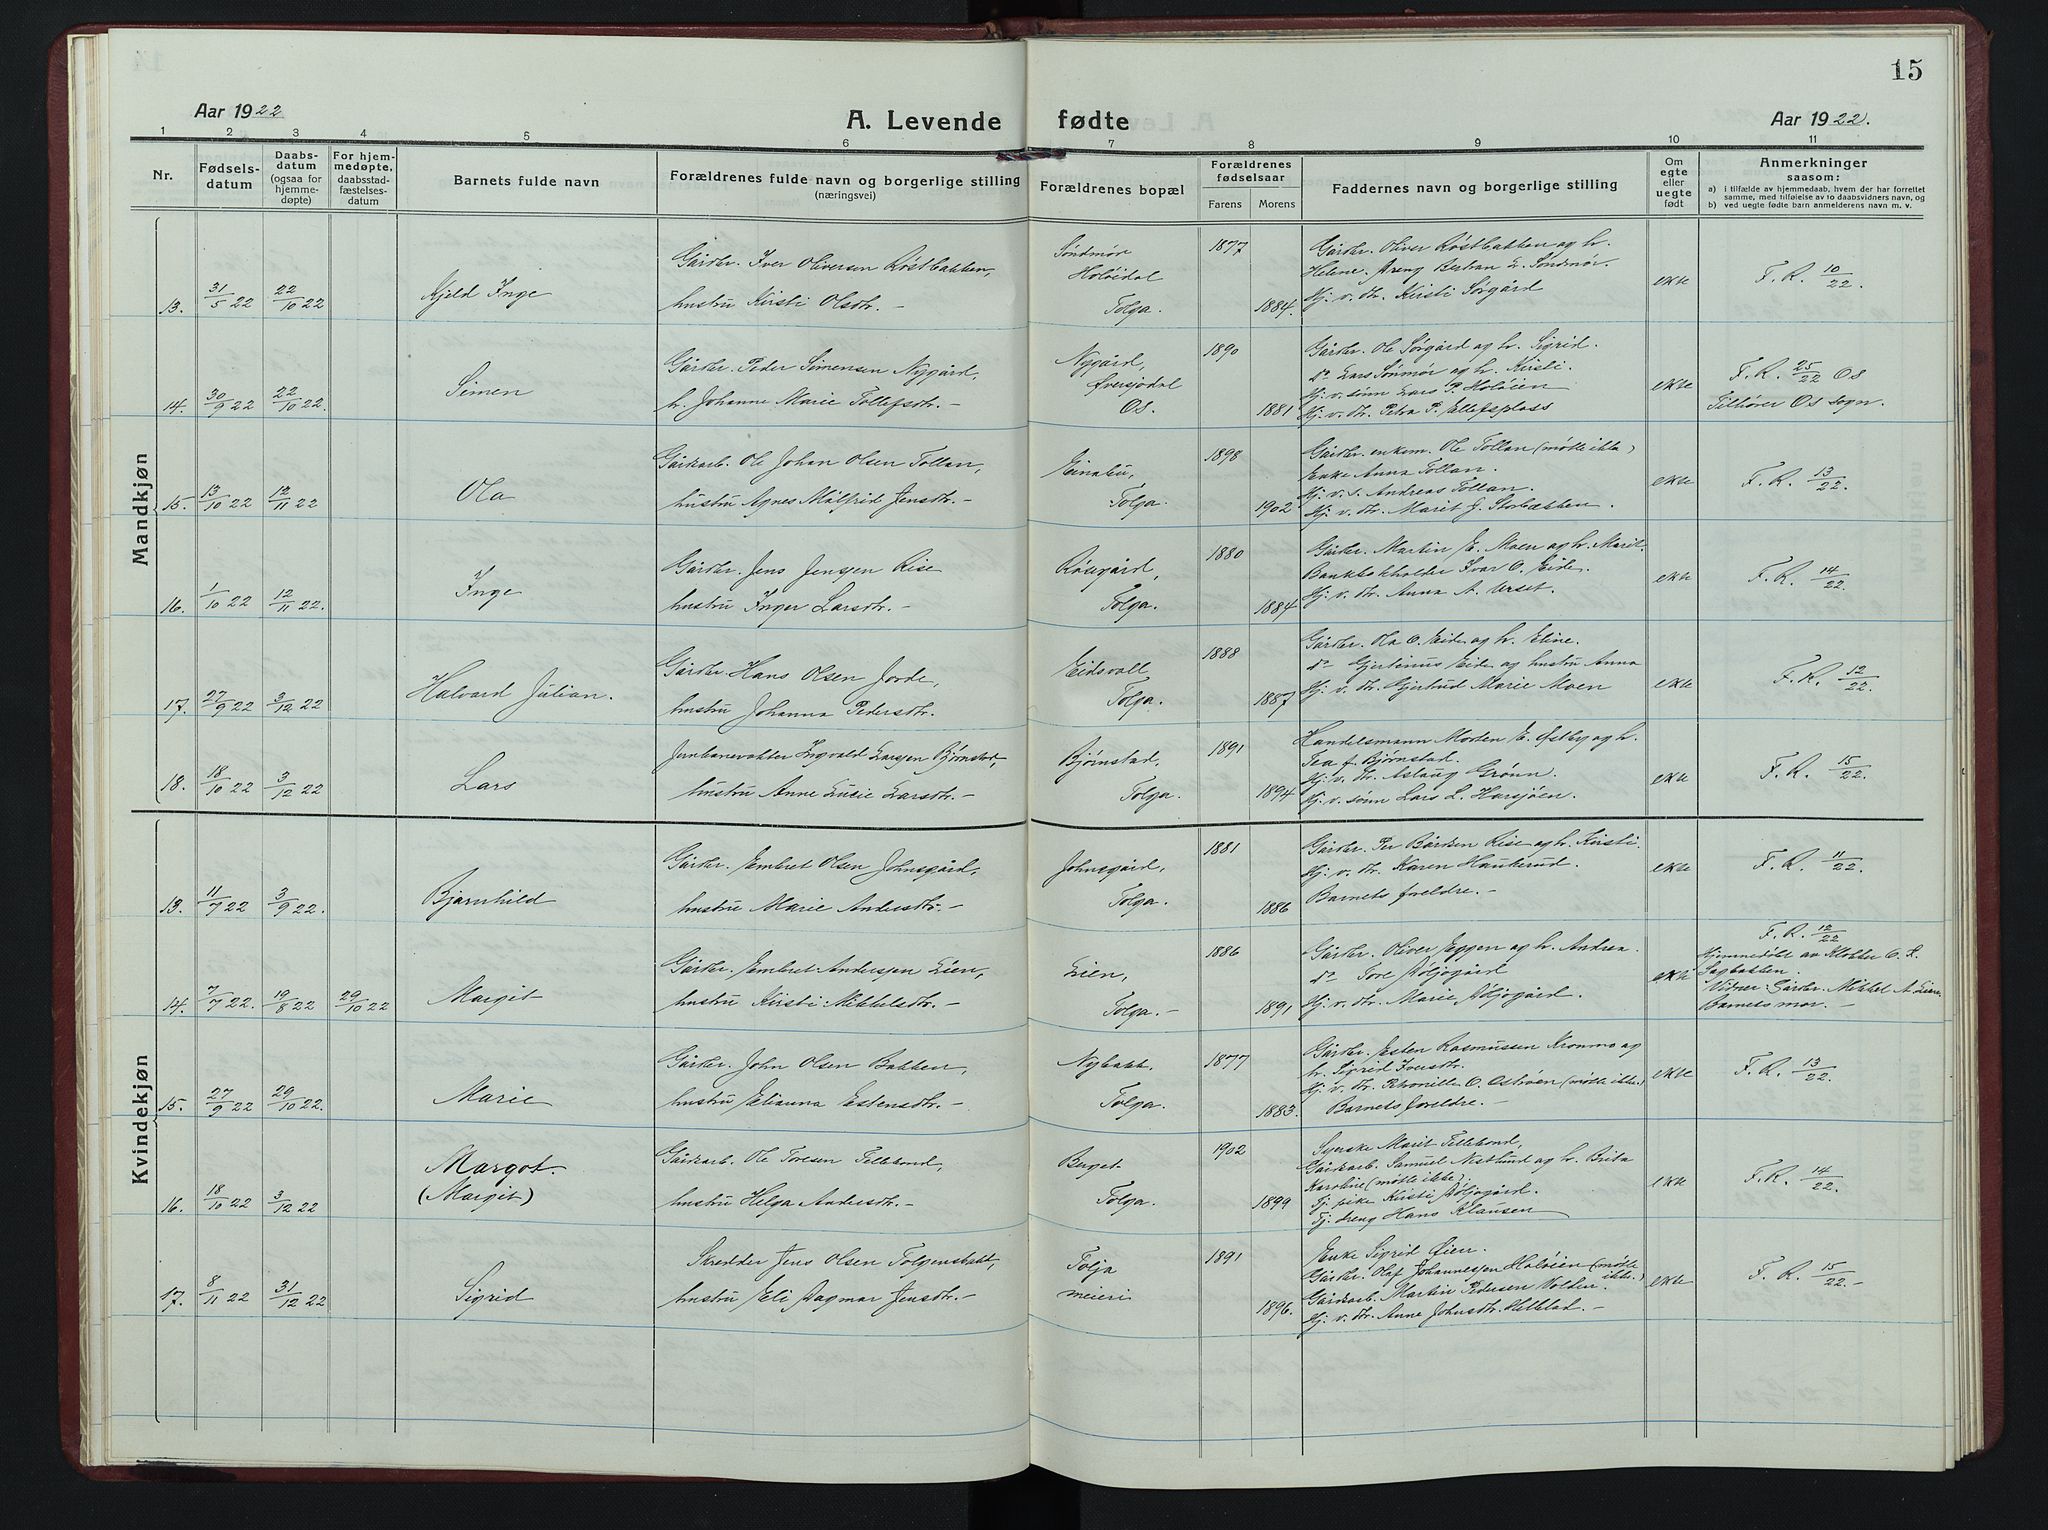 15
Aar 1922
A. Levende fødte
Aar 1922.
1 2 3 4 5 6 7 8 9 10 11
Nr.
Fødsels-
datum
Daabs-
datum
(ogsaa for
hjemme-
døpte)
For hjem-
medøpte,
daabsstad-
fæstelses-
datum
Barnets fulde navn
Forældrenes fulde navn og borgerlige stilling
(næringsvei)
Forældrenes bopæl
Forældrenes
fødselsaar
Farens Morens
Faddernes navn og borgerlige stilling
Om
egte
eller
uegte
født
Anmerkninger
saasom:
a) i tilfælde av hjemmedaab, hvem der har forrettet
samme, med tilføielse av to daabsvidners navn, og
b) ved uegte fødte barn anmelderens navn m. v.
Mandkjøn
13. 31/5 22 22/10 22 Kjeld Inge
Gårdbr. Iver Oliversen Røstbakken,
hustru Kirsti Olsdtr. -
Søndmør
Holøidal
Tolga.
1877
1884.
Gårdbr. Oliver Røstbakken og h.
Helene. Dreng Bertran L. Søndmør.
Hj. v. dtr. Kirsti Sørgård
ekte
F. R. 10/22.
14. 30/9 22 22/10 22. Simen
Gårdbr. Peder Simensen Nygård,
h. Johanne Marie Tollefsdtr. -
Nygård,
Øversjødal
Os.
1890
1881
Gårdbr. Ole Sørgård og h. Sigrid.
do Lars Sønmør og h. Kirsti.
Hj. v. sønn Lars P. Holøien
Hj. v. dtr. Petra P. Ellefsplass
ekte
F. R. 25/22 Os
Tilhører Os sogn.
15. 13/10 22 12/11 22 Ola
Gårdarb. Ole Johan Olsen Tollan,
hustru Agnes Målfrid Jensdtr. -
Einabu,
Tolga.
1898
1902
Gårdbr. enkem. Ole Tollan (møtte ikke)
Enke Anna Tollan.
Hj. v. s. Andreas Tollan.
Hj. v. dtr. Marit J. Storbækken.
ekte
F. R. 13/22.
16. 1/10 22 12/11 22. Inge
Gårdbr. Jens Jensen Rise
hustru Inger Larsdtr. -
Røsegård,
Tolga.
1880
1884
Gårdbr. Martin E. Moen og h. Marit.
Bankbokholder Ivar O. Eide.
Hj. v. dtr. Anna A. Urset.
ekte
F. R. 14/22
17. 27/9 22 3/12 22 Halvard Julian.
Gårdbr. Hans Olsen Jorde,
hustru Johanna Pedersdtr.
Eidsvoll
Tolga.
1888
1887
Gårdbr. Ola O. Eide og h. Eline.
do Gjertinus Eide og hustru Anna
Hj. v. dtr. Gjertrud Marie Moen
ekte
F. R. 12/22.
18. 18/10 22 3/12 22 Lars
Jernbanevokter Ingvald Larsen Bjørnstad,
hustru Anne Lucie Larsdtr. -
Bjørnstad,
Tolga.
1891
1894
Handelsmann Morten E. Østby og h.
Tea f. Bjørnstad.
Hj. v. dtr. Aslaug Grønn.
Hj. v. sønn Lars L. Harsjøen.
ekte
F. R. 15/22.
Kvindekjøn
13. 11/7 22 3/9 22. Bjarnhild
Gårdbr. Embret Olsen Johnsgård,
hustru Marie Andersdtr. -
Johnsgård,
Tolga.
1881
1886
Gårdbr. Per Bårdsen Rise og h. Kirsti.
Hj. v. dtr. Karen Haukerud.
Barnets foreldre. -
ekte
F. R. 11/22.
14. 7/7 22. 19/8 22 29/10 22 Margit
Gårdbr. Embret Andersen Lien,
hustru Kirsti Mikkelsdtr. -
Lien,
Tolga. -
1886
1891
Gårdbr. Oliver Eggen og h. Andrea.
do Tore Døljogård
Hj. v. dtr. Marie Døljogård.
ekte
F. R. 12/22
Hjemmedøbt av Klokker O. K.
Sagbakken.
Vidner: Gårdbr. Mikkel A. Lien.
Barnets mor. -
15. 27/9 22 29/10 22. Marie
Gårdbr. John Olsen Bakken,
hustru Elianna Estensdtr. -
Nybakk.
Tolga.
1877
1883.
Gårdbr. Esten Rasmussen Kronmo og
h. Sigrid Iversdtr.
Hj. v. dtr. Petronille O. Osbrøen (møtte ikke.)
Barnets foreldre. -
ekte
F. R. 13/22.
16. 18/10 22 3/12 22 Margot.
(Margit)
Gårdarb. Ole Toresen Tellebond,
hustru Helga Andersdtr. -
Berget
Tolga.
1902
1899
Syerske Marit Tellebond,
Gårdarb. Samuel Nestlund og h. Brita
Karoline (møtte ikke).
Tj. pike Kirsti Døljogård.
Tj. dreng Hans Klausen
ekte
F. R. 14/22.
17. 8/11 22 31/12 22 Sigrid
Skredder Jens Olsen Tolgensbakk,
hustru Eli Dagmar Jensdtr. -
Tolga
meieri
1891
1896.
Enke Sigrid Øien.
Gårdbr. Olaf Johannessen Holøien (møtte
ikke.)
Gårdarb. Martin Pedersen Volden
Hj. v. dtr. Anne Johnsdtr. Hellstad. -
ekte
F. R. 15/22. -